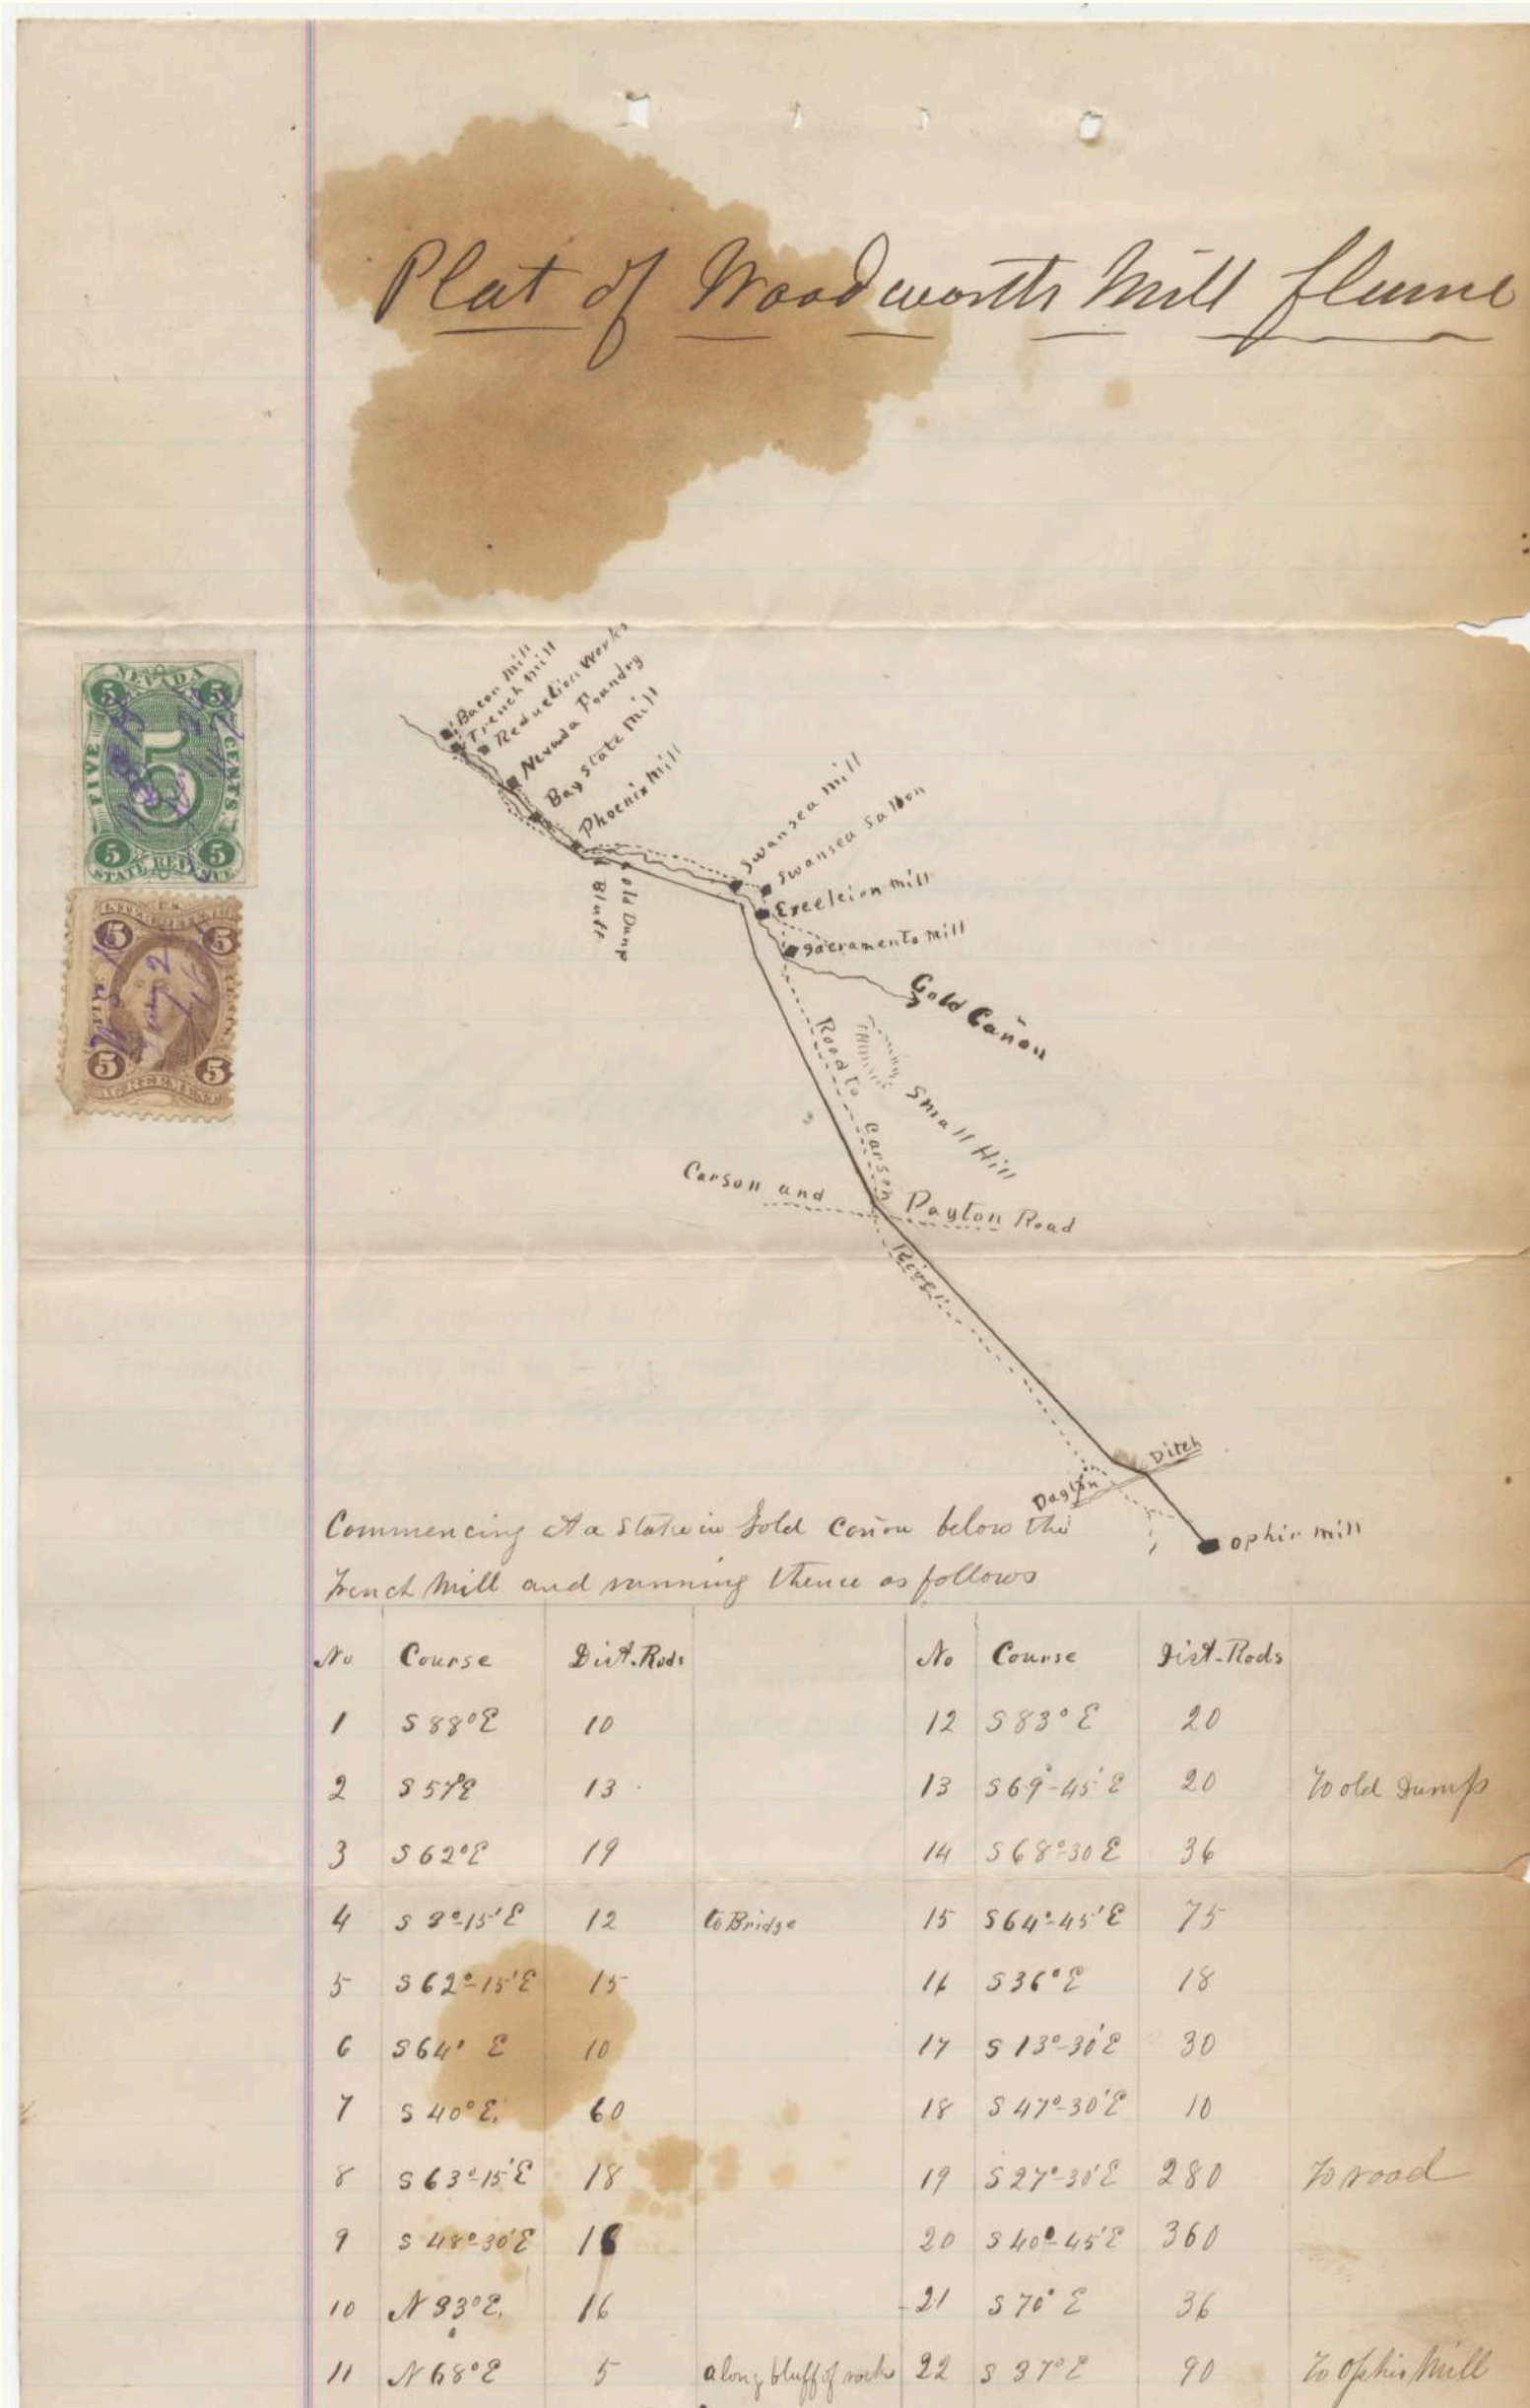 Plat of Woodworth Mill flume
NEVADA
5 5
FIVE CENTS
5 5
STATE REVENUE
5 5
5 5
Bacon Mill
French Mill
Reduction Works
Nevada Foundry
Bay State Mill
Phoenix Mill
Bluff
old Dump
Swansea Mill
Swansea Saloon
Excelcion Mill
Sacramento Mill
Gold Cañon
Small Hill
Road to Carson River
Carson and Dayton Road
Dayton Ditch
Ophir Mill
Commencing at a Stake in Gold Cañon below the
French Mill and running thence as follows
No Course Dist. Rods No Course Dist-Rods
1 S 88° E 10 12 S 83° E 20
2 S 57° E 13 13 S 69°-45' E 20 To old Dump
3 S 62° E 19 14 S 68°-30 E 36
4 S 3°-15' E 12 to Bridge 15 S 64°-45' E 75
5 S 62°-15' E 15 16 S 36° E 18
6 S 64° E 10 17 S 13°-30' E 30
7 S 40° E. 60 18 S 47°-30' E 10
8 S 63°-15' E 18 19 S 27°-30' E 280 To road
9 S 48°-30' E 20 S 40°-45' E 360
10 N 83° E. 16 21 S 70° E 36
11 N 68° E 5 along bluff of rocks 22 S 37° E 90 To Ophir Mill